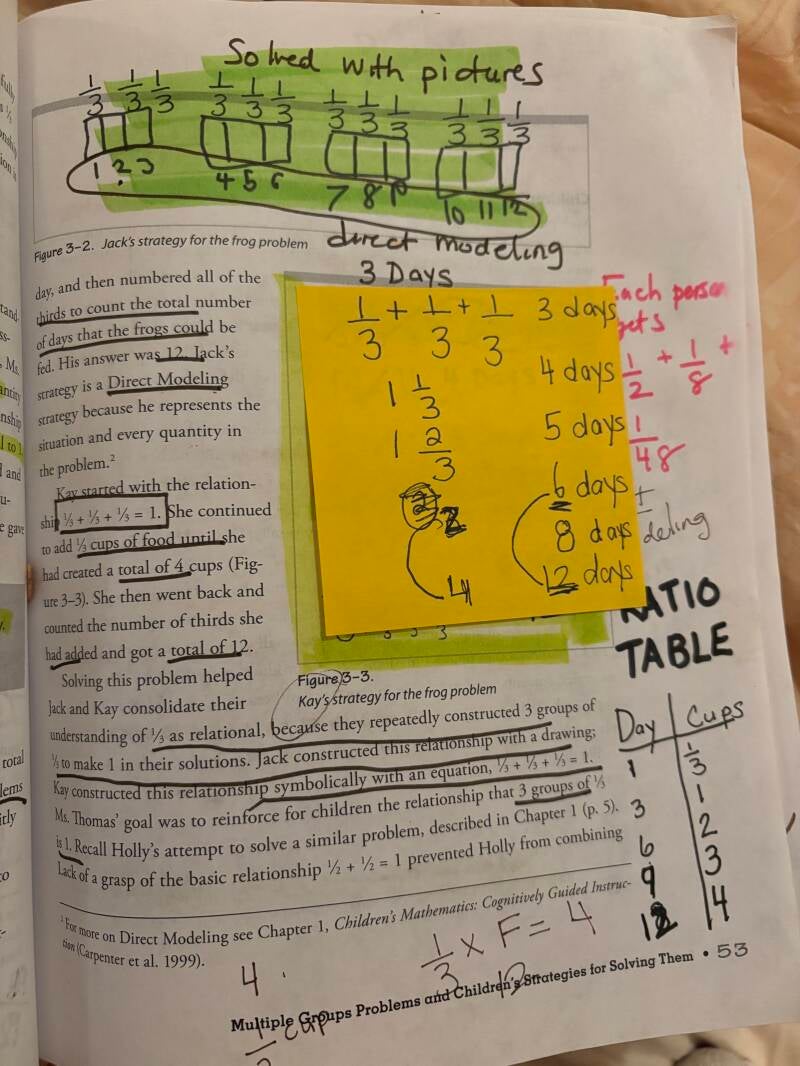 Solved with pictures
1/3 1/3 1/3 1/3 1/3 1/3 1/3 1/3 1/3 1/3 1/3 1/3
1 2 3 4 5 6 7 8 9 10 11 12
Figure 3–2. Jack's strategy for the frog problem
direct modeling
day, and then numbered all of the
thirds to count the total number
of days that the frogs could be
fed. His answer was 12. Jack's
strategy is a Direct Modeling
strategy because he represents the
situation and every quantity in
the problem.²
Kay started with the relation-
ship ⅓ + ⅓ + ⅓ = 1. She continued
to add ⅓ cups of food until she
had created a total of 4 cups (Fig-
ure 3–3). She then went back and
counted the number of thirds she
had added and got a total of 12.
Solving this problem helped
Jack and Kay consolidate their
understanding of ⅓ as relational, because they repeatedly constructed 3 groups of
⅓ to make 1 in their solutions. Jack constructed this relationship with a drawing;
Kay constructed this relationship symbolically with an equation, ⅓ + ⅓ + ⅓ = 1.
Ms. Thomas' goal was to reinforce for children the relationship that 3 groups of ⅓
is 1. Recall Holly's attempt to solve a similar problem, described in Chapter 1 (p. 5).
Lack of a grasp of the basic relationship ½ + ½ = 1 prevented Holly from combining
3 Days
1/3 + 1/3 + 1/3 3 days
1 1/3 4 days
1 2/3 5 days
2 6 days
8 days
4 12 days
Each person
gets
1/2 + 1/8 +
1/48
deling
RATIO
TABLE
Figure 3–3.
Kay's strategy for the frog problem
Day Cups
1 1/3
3 1
6 2
9 3
12 4
² For more on Direct Modeling see Chapter 1, Children's Mathematics: Cognitively Guided Instruc-
tion (Carpenter et al. 1999).
1/3 × F = 4
4
cup
Multiple Groups Problems and Children's Strategies for Solving Them • 53